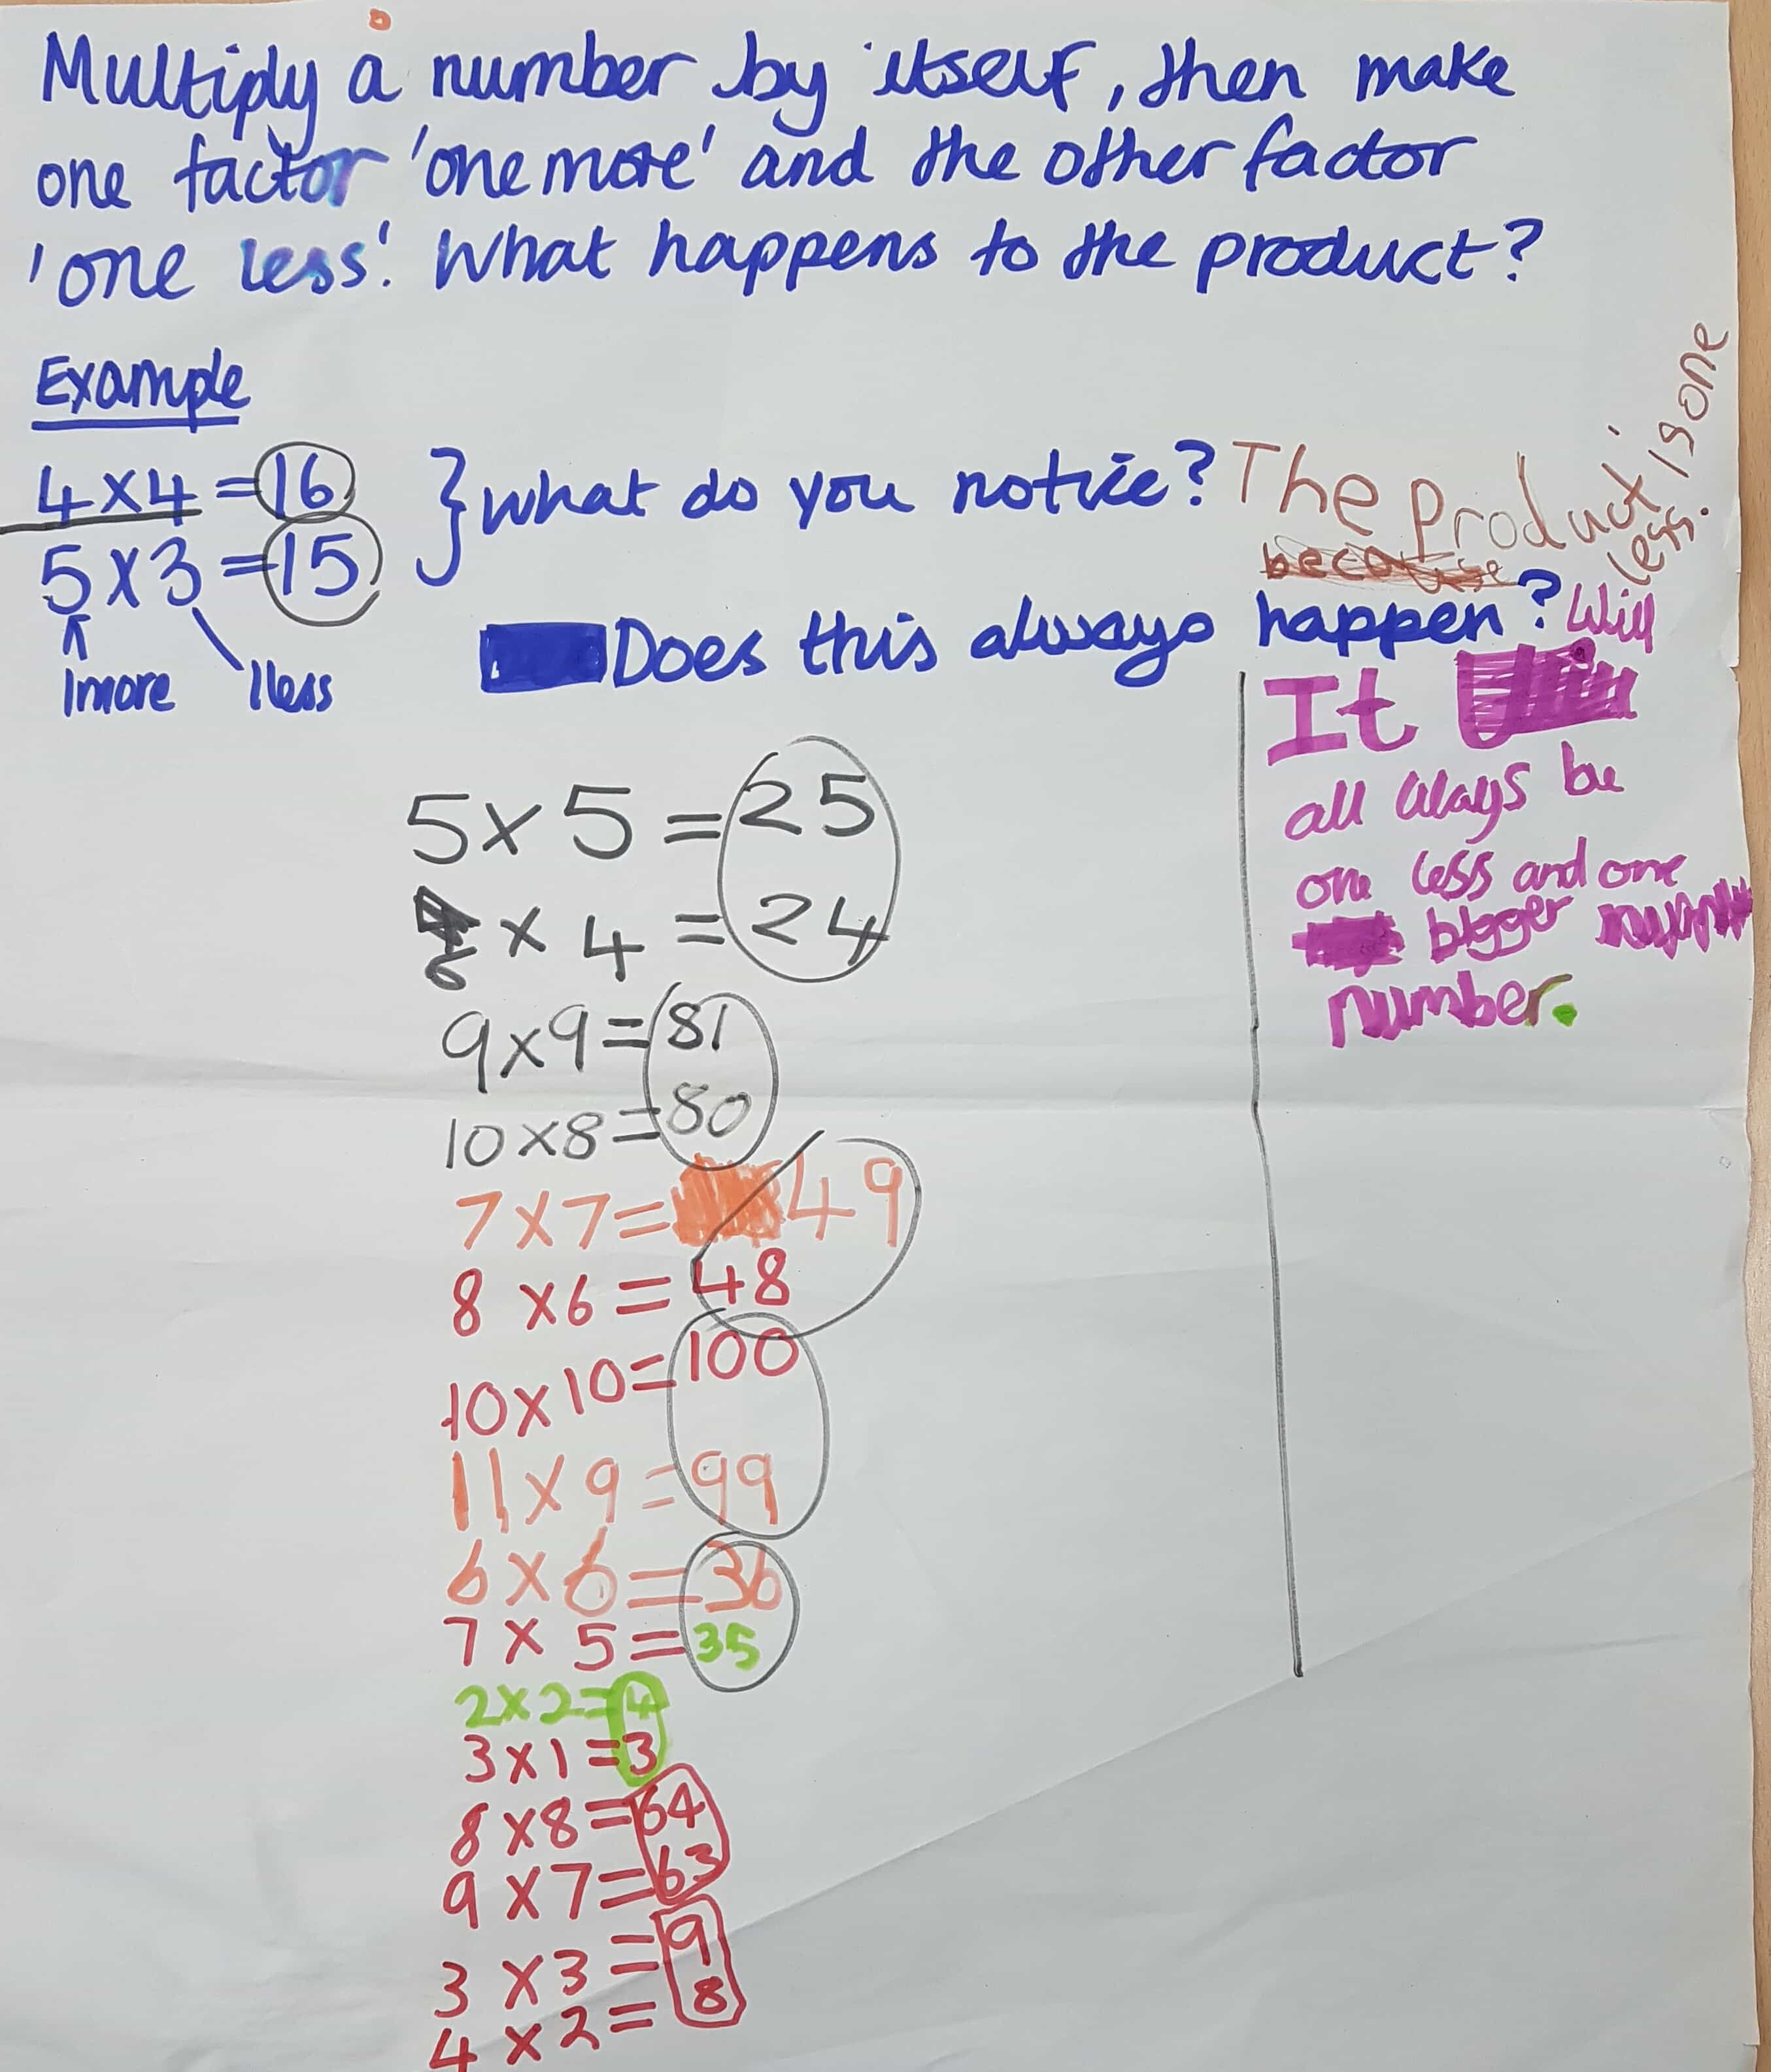 Multiply a number by itself, then make
one factor 'one more' and the other factor
'one less'. What happens to the product?
Example
4x4 =16
5x3 =15
1more 1less
} What do you notice? The product is one
less.
because
Does this always happen? Will
It
all ways be
one less and one
bigger
number.
5x 5 =25
6 x 4 =24
9x9=81
10x8=80
7x7= 49
8 x6 = 48
10x10=100
11x9=99
6x6=36
7x 5=35
2x2=4
3x1=3
8x8=64
9x7=63
3 x3=9
4 x2= 8